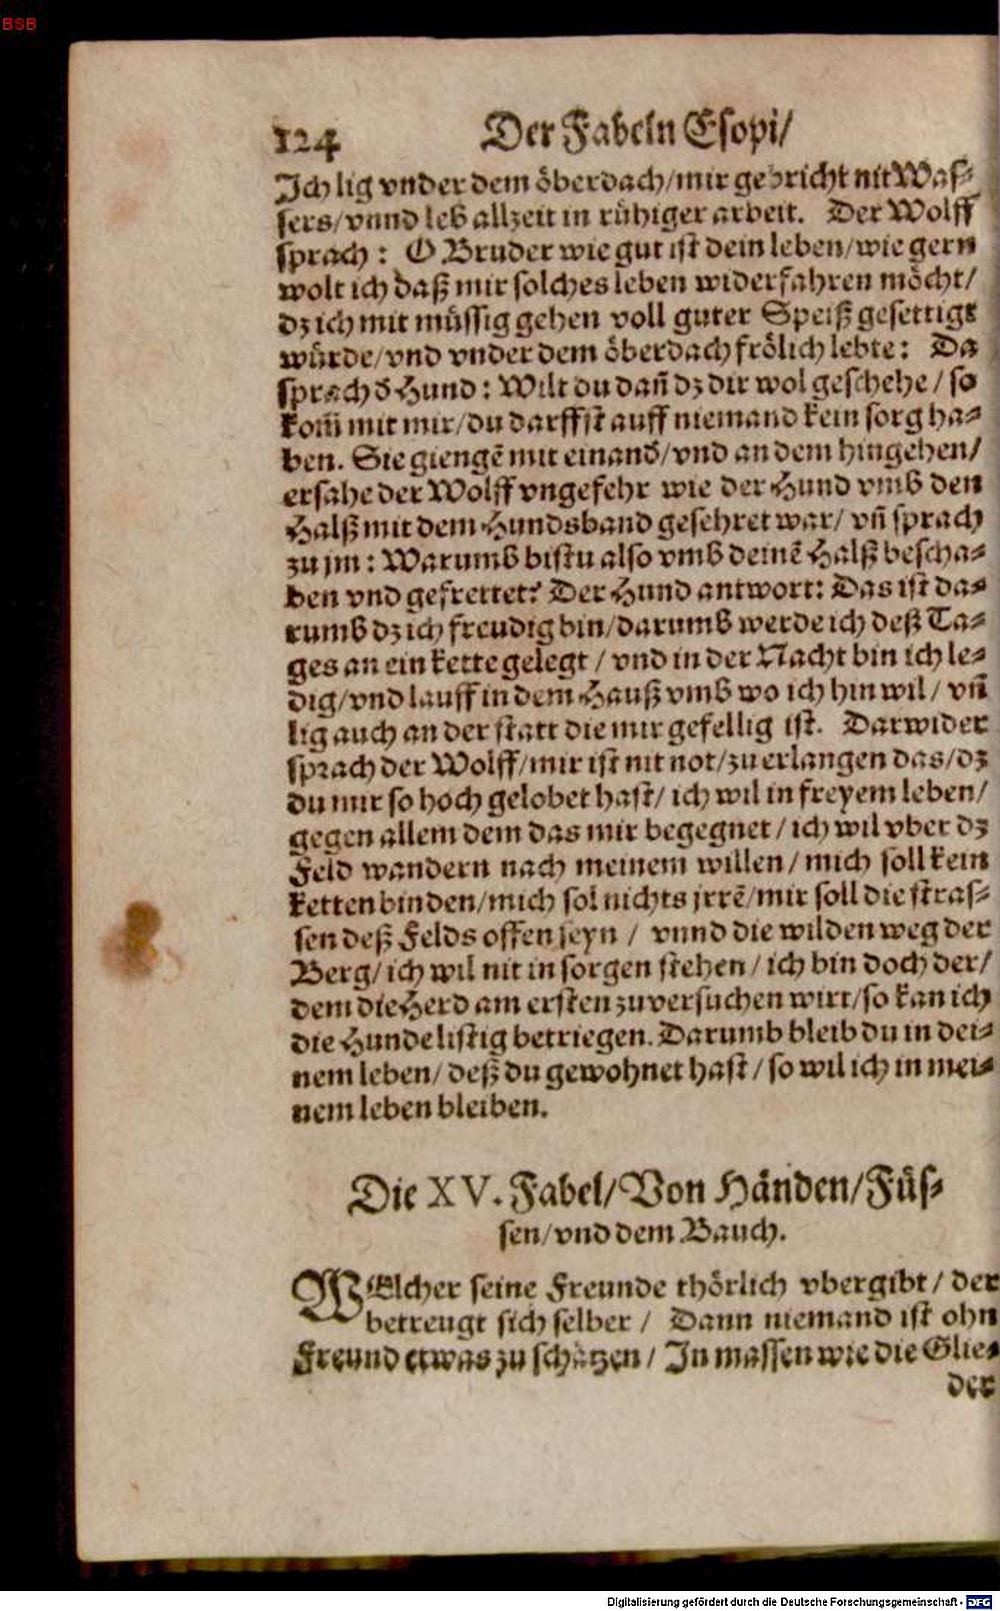 BSB
124 Der Fabeln Esopi/
Ich lig vnder dem öberdach/mir gebricht nit Was-
sers/vnnd leb allzeit in rühiger arbeit. Der Wolff
sprach: O Bruder wie gut ist dein leben/wie gern
wolt ich daß mir solches leben widerfahren möcht/
dz ich mit müssig gehen voll guter Speiß gesettigt
würde/vnd vnder dem öberdach frölich lebte: Da
sprach d̕ Hund: Wilt du dañ dz dir wol geschehe/so
kom̃ mit mir/du darffst auff niemand kein sorg ha-
ben. Sie giengẽ mit einand̕/vnd an dem hingehen/
ersahe der Wolff vngefehr wie der Hund vmb den
Halß mit dem Hundsband gesehret war/ vñ sprach
zu jm: Warumb bistu also vmb deinẽ Halß bescha-
ben vnd gefrettet? Der Hund antwort: Das ist da-
rumb dz ich freudig bin/darumb werde ich deß Ta-
ges an ein kette gelegt/vnd in der Nacht bin ich le-
dig/vnd lauff in dem Hauß vmb wo ich hin wil/ vñ
lig auch an der statt die mir gefellig ist. Darwider
sprach der Wolff/mir ist nit not/zu erlangen das/dz
du mir so hoch gelobet hast/ ich wil in freyem leben/
gegen allem dem das mir begegnet/ich wil vber dz
Feld wandern nach meinem willen/mich soll kein
ketten binden/mich sol nichts jrrẽ/mir soll die stras-
sen deß Felds offen seyn / vnnd die wilden weg der
Berg/ich wil nit in sorgen stehen/ich bin doch der/
dem die Herd am ersten zu versuchen wirt/so kan ich
die Hunde listig betriegen. Darumb bleib du in dei-
nem leben/deß du gewohnet hast/so wil ich in mei-
nem leben bleiben.
Die XV. Fabel/Von Händen/Füs-
sen/vnd dem Bauch.
WElcher seine Freunde thörlich vbergibt/der
betreugt sich selber/ Dann niemand ist ohn
Freund etwas zu schätzen/ In massen wie die Glie-
der
Digitalisierung gefördert durch die Deutsche Forschungsgemeinschaft - DFG